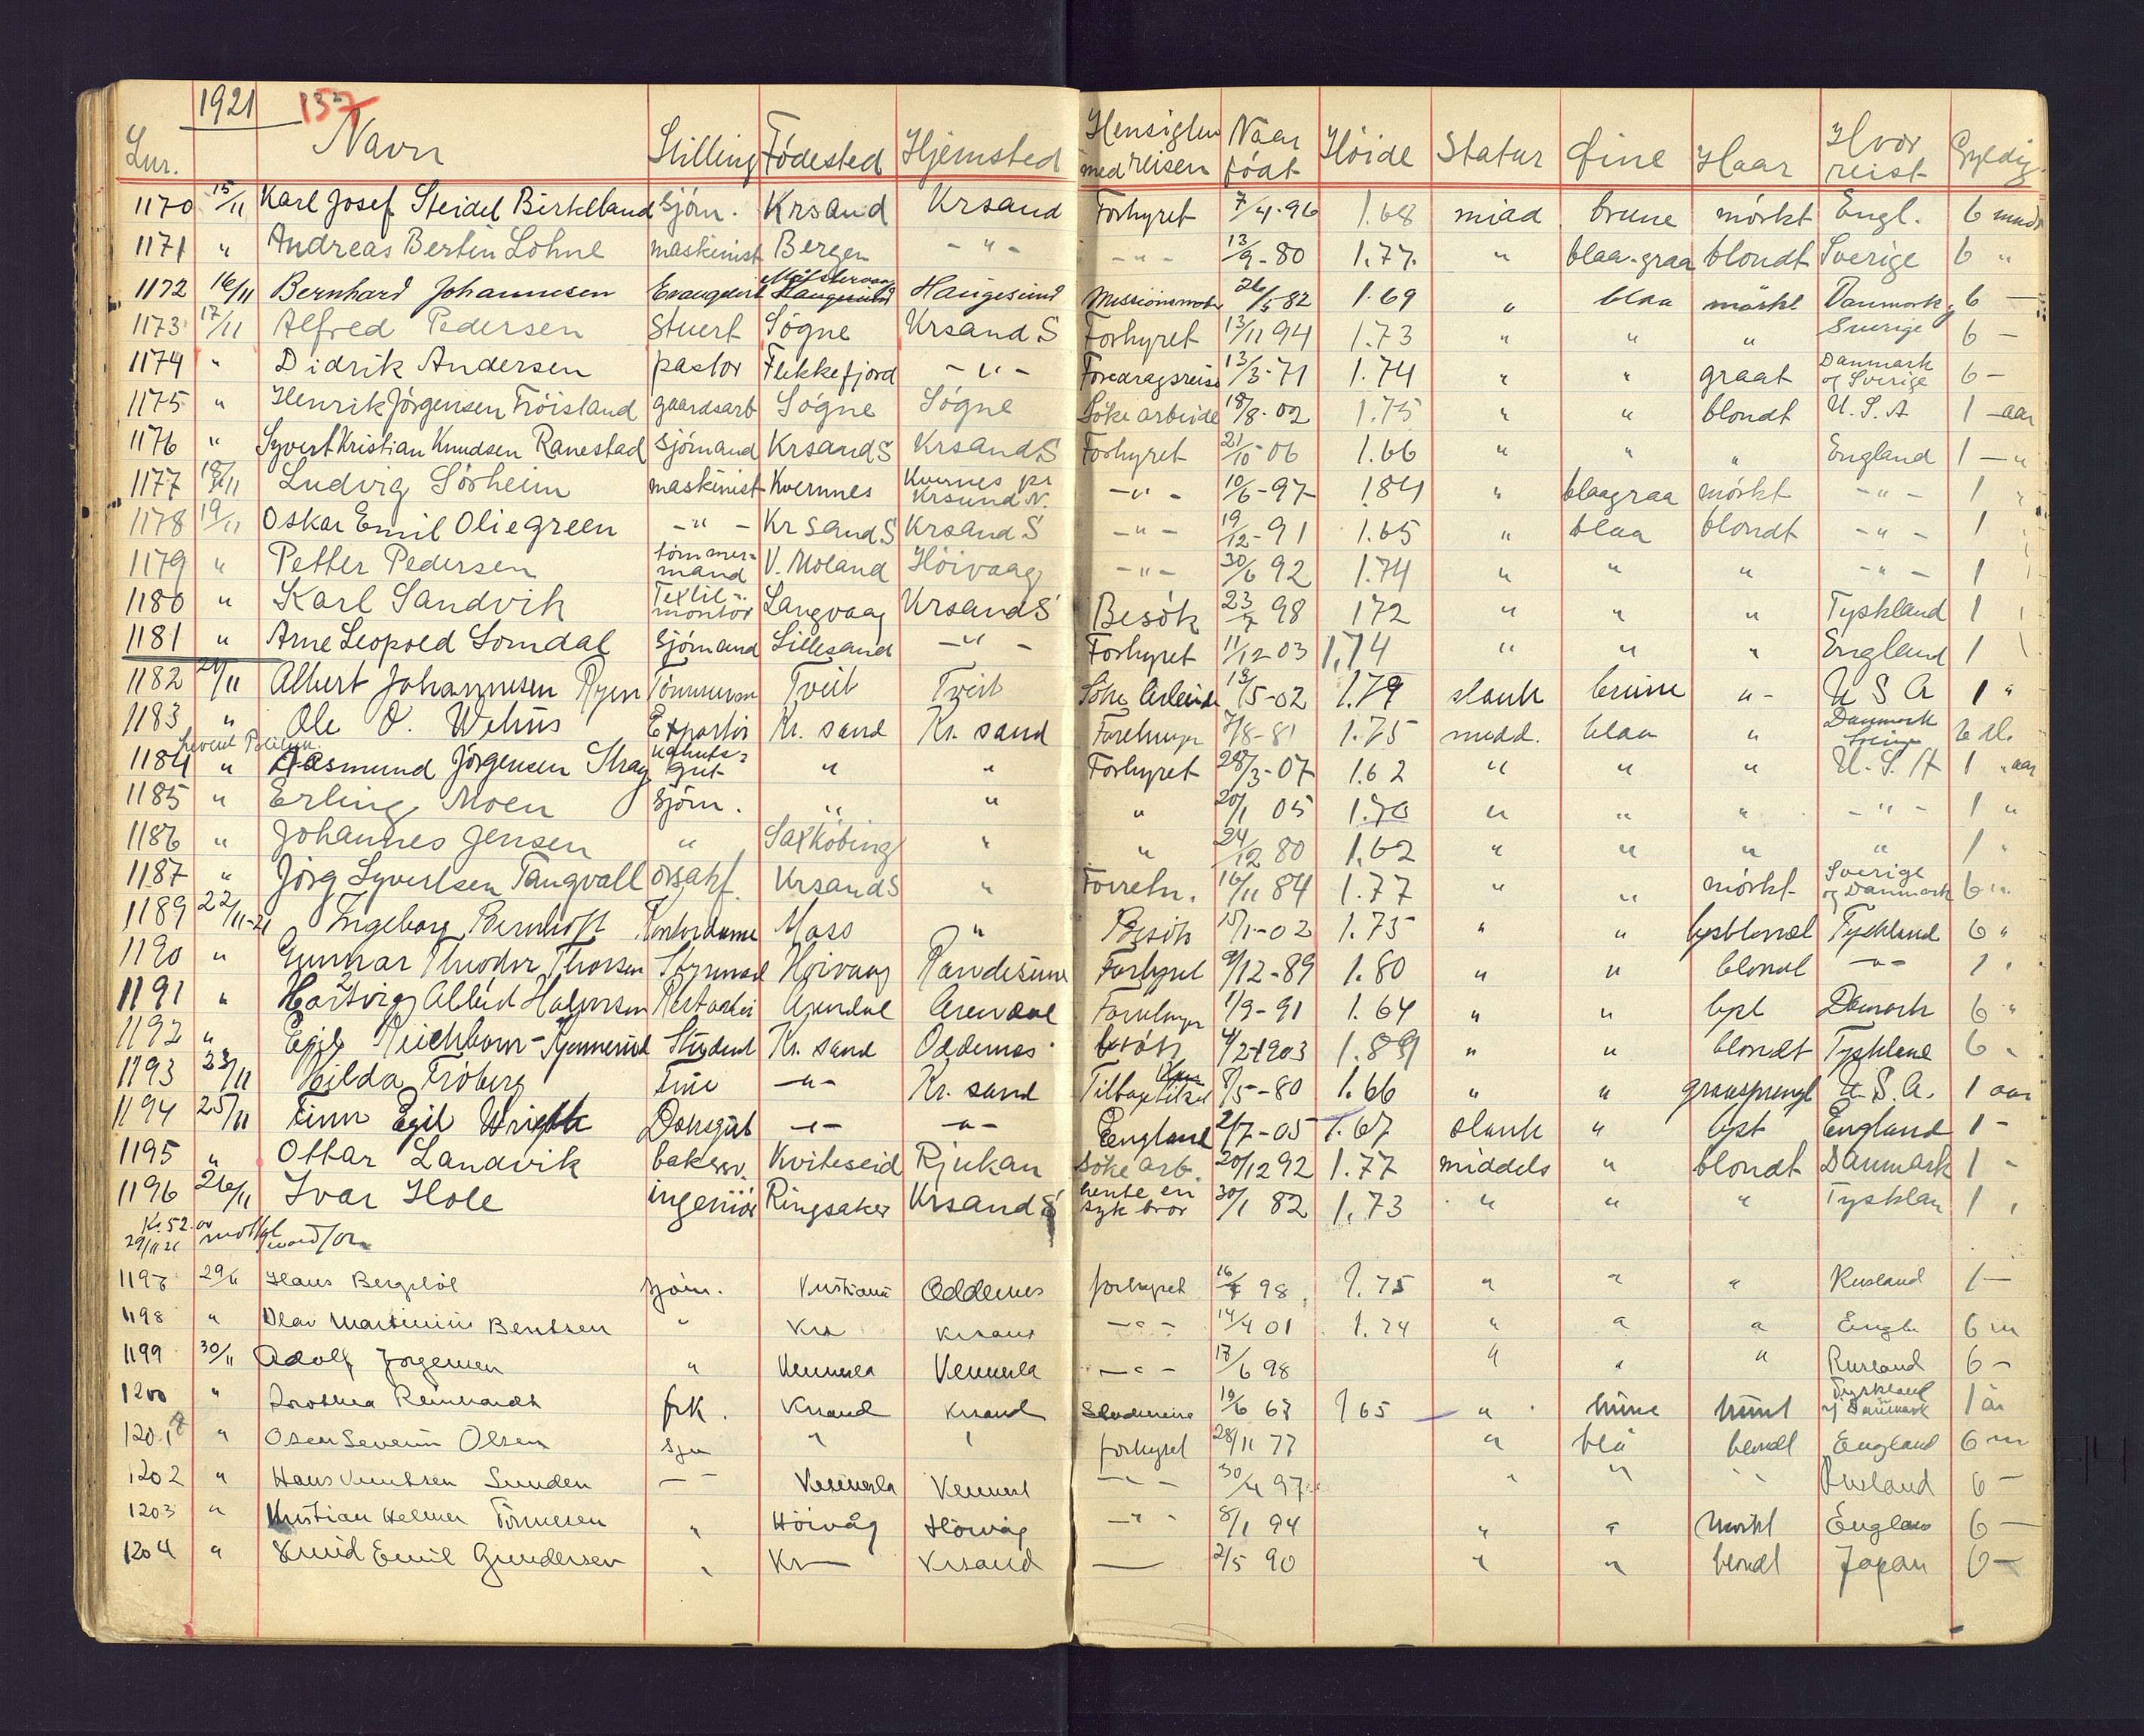 1921 137
Lnr. Navn Stilling Födested Hjemsted Hensigten med reisen Naar födt Höide Statur Öine Haar Hvor reist Gyldig
1170 15/11 Karl Josef Steidel Birkeland sjöm. Krsand Krsand Forhyret 7/4-96 1.68 midd brune mörkt Engl. 6 mnd
1171 " Andreas Bertin Lohne maskinist Bergen - " - - " - 13/9-80 1.77. " blaa-graa blondt Sverige 6 "
1172 16/11 Bernhard Johannesen Evangelist Haugesund Haugesund 26/5 82 1.69 " blaa mörkt Danmark, 6 —
1173 17/11 Alfred Pedersen Stuert Sögne Krsand S Forhyret 13/11 94 1.73 " " " Sverige 6 —
1174 " Didrik Andersen pastor Flekkefjord - " - Foredragsreise 13/3-71 1.74 " " graat Danmark og Sverige 6 -
1175 " Henrik Jörgensen Tröisland gaardsarb Sögne Sögne Söke arbeide 18/8-02 1.75 " " blondt U.S.A 1 - aar
1176 " Syvert Kristian Knudsen Ranestad sjömand Krsand S Krsand S Forhyret 21/10-06 1.66 " " " England 1 — "
1177 18/11 Ludvig Sörheim maskinist Kvernnes Kvernes pr Krsund N. - " - 10/6-97 1.84 " blaagraa mörkt - " - 1 "
1178 19/11 Oskar Emil Oliegreen - " - Kr Sand S Krsand S - " - 19/12-91 1.65 " blaa blondt - " - 1 "
1179 " Petter Pedersen tömmer=mand V. Moland Höivaag - " - 30/6 92 1.74 " " " - " - 1
1180 " Karl Sandvik Textil=montör Langvaag Krsand S Besök 23/7 98 172 " " " Tyskland 1
1181 " Arne Leopold Somdal sjömand Lillesand - " - Forhyret 11/12-03 1,74 " " " England 1
1182 21/11 Albert Johannesen Ryen Tveit Tveit Söke Arbeide 13/5-02 1.79 slank brune " - U S A 1 "
1183 " Ole O. Wehus Exportör Kr. sand Kr. sand 7/8-81 1.75 midd. blaa " Danmark
1184 " Aasmund Jörgensen Stray gut " " Forhyret 28/3-07 1.62 " " " U.S.A 1 " aar
1185 " Erling Moen sjöm. " " " 20/1 05 1.70 " " " - " - 1 "
1186 " Johannes Jensen " Saxköbing " " 24/12 80 1.62 " " " " 1 "
1187 " Jörg Syvertsen Tangvall Krsand S " Forretn. 16/11 84 1.77 " " mörkt Sverige og Danmark 6 "
1189 22/11-21 Ingeborg Bernhoft Kontordame Moss " Besök 15/1-02 1.75 " " lysblond Tyskland 6 "
1190 " Gunnar Theodor Thorsen Styrmand Höivaag Randesund Forhyret 9/12-89 1.80 " " blondt - " - 1 "
1191 " Hartvig Albert Halvorsen Arendal Arendal 1/9-91 1.64 " " lyst Danmark 6 "
1192 " Egil Reichborn-Kjennerud Student Kr. sand Oddernes besök 4/2-1903 1.89 " " blondt Tyskland 6 "
1193 23/11 Hilda Fröberg Frue - " - Kr. sand 8/5-80 1.66 " " graasprengt U.S.A. 1 aar
1194 25/11 Finn Egil Wright Dæksgut - " - - " - England 2/7-05 1.67 slank " lyst England 1 -
1195 " Ottar Landvik bakersv. Kviteseid Rjukan Söke arb. 20/12 92 1.77 middels " blondt Danmark 1 -
1196 26/11 Ivar Hole ingeniör Ringsaker Krsand S hente en syk bror 30/1 82 1.73 " " " Tysklan 1 "
Kr. 52.00
29/11 21
1197 29/11 Hans sjöm. Kristiania Oddernes forhyret 16/7 98 1.75 " " " Rusland 1 —
1198 " Olav Martinius Bentsen " Krs Krsand - " - 14/4 01 1.74 " " " Engl 6 m
1199 30/11 Adolf Jörgensen " Vennesla Vennesla - " - 18/6 98 " " " Rusland 6 -
1200 " Dorothea Reinhardt frk. Krsand Krsand Studiereise 19/6 67 1 65 " brune brunt Tyskland og Danmark 1 år
1201 " Oscar Severin Olsen sjm " " forhyret 28/11 77 " blå blondt England 6 m
1202 " Hans Knutsen Sunden - - Vennesla Vennesl - " - 30/4 97 " " " Rusland 6 -
1203 " Kristian Helmer Tönnesen " Höivåg Höivåg - " - 8/1 94 " " Mörkt England 6 —
1204 " Knud Emil Gundersen " Kr— Krsand — 2/5 90 " " blondt Japan 6 -